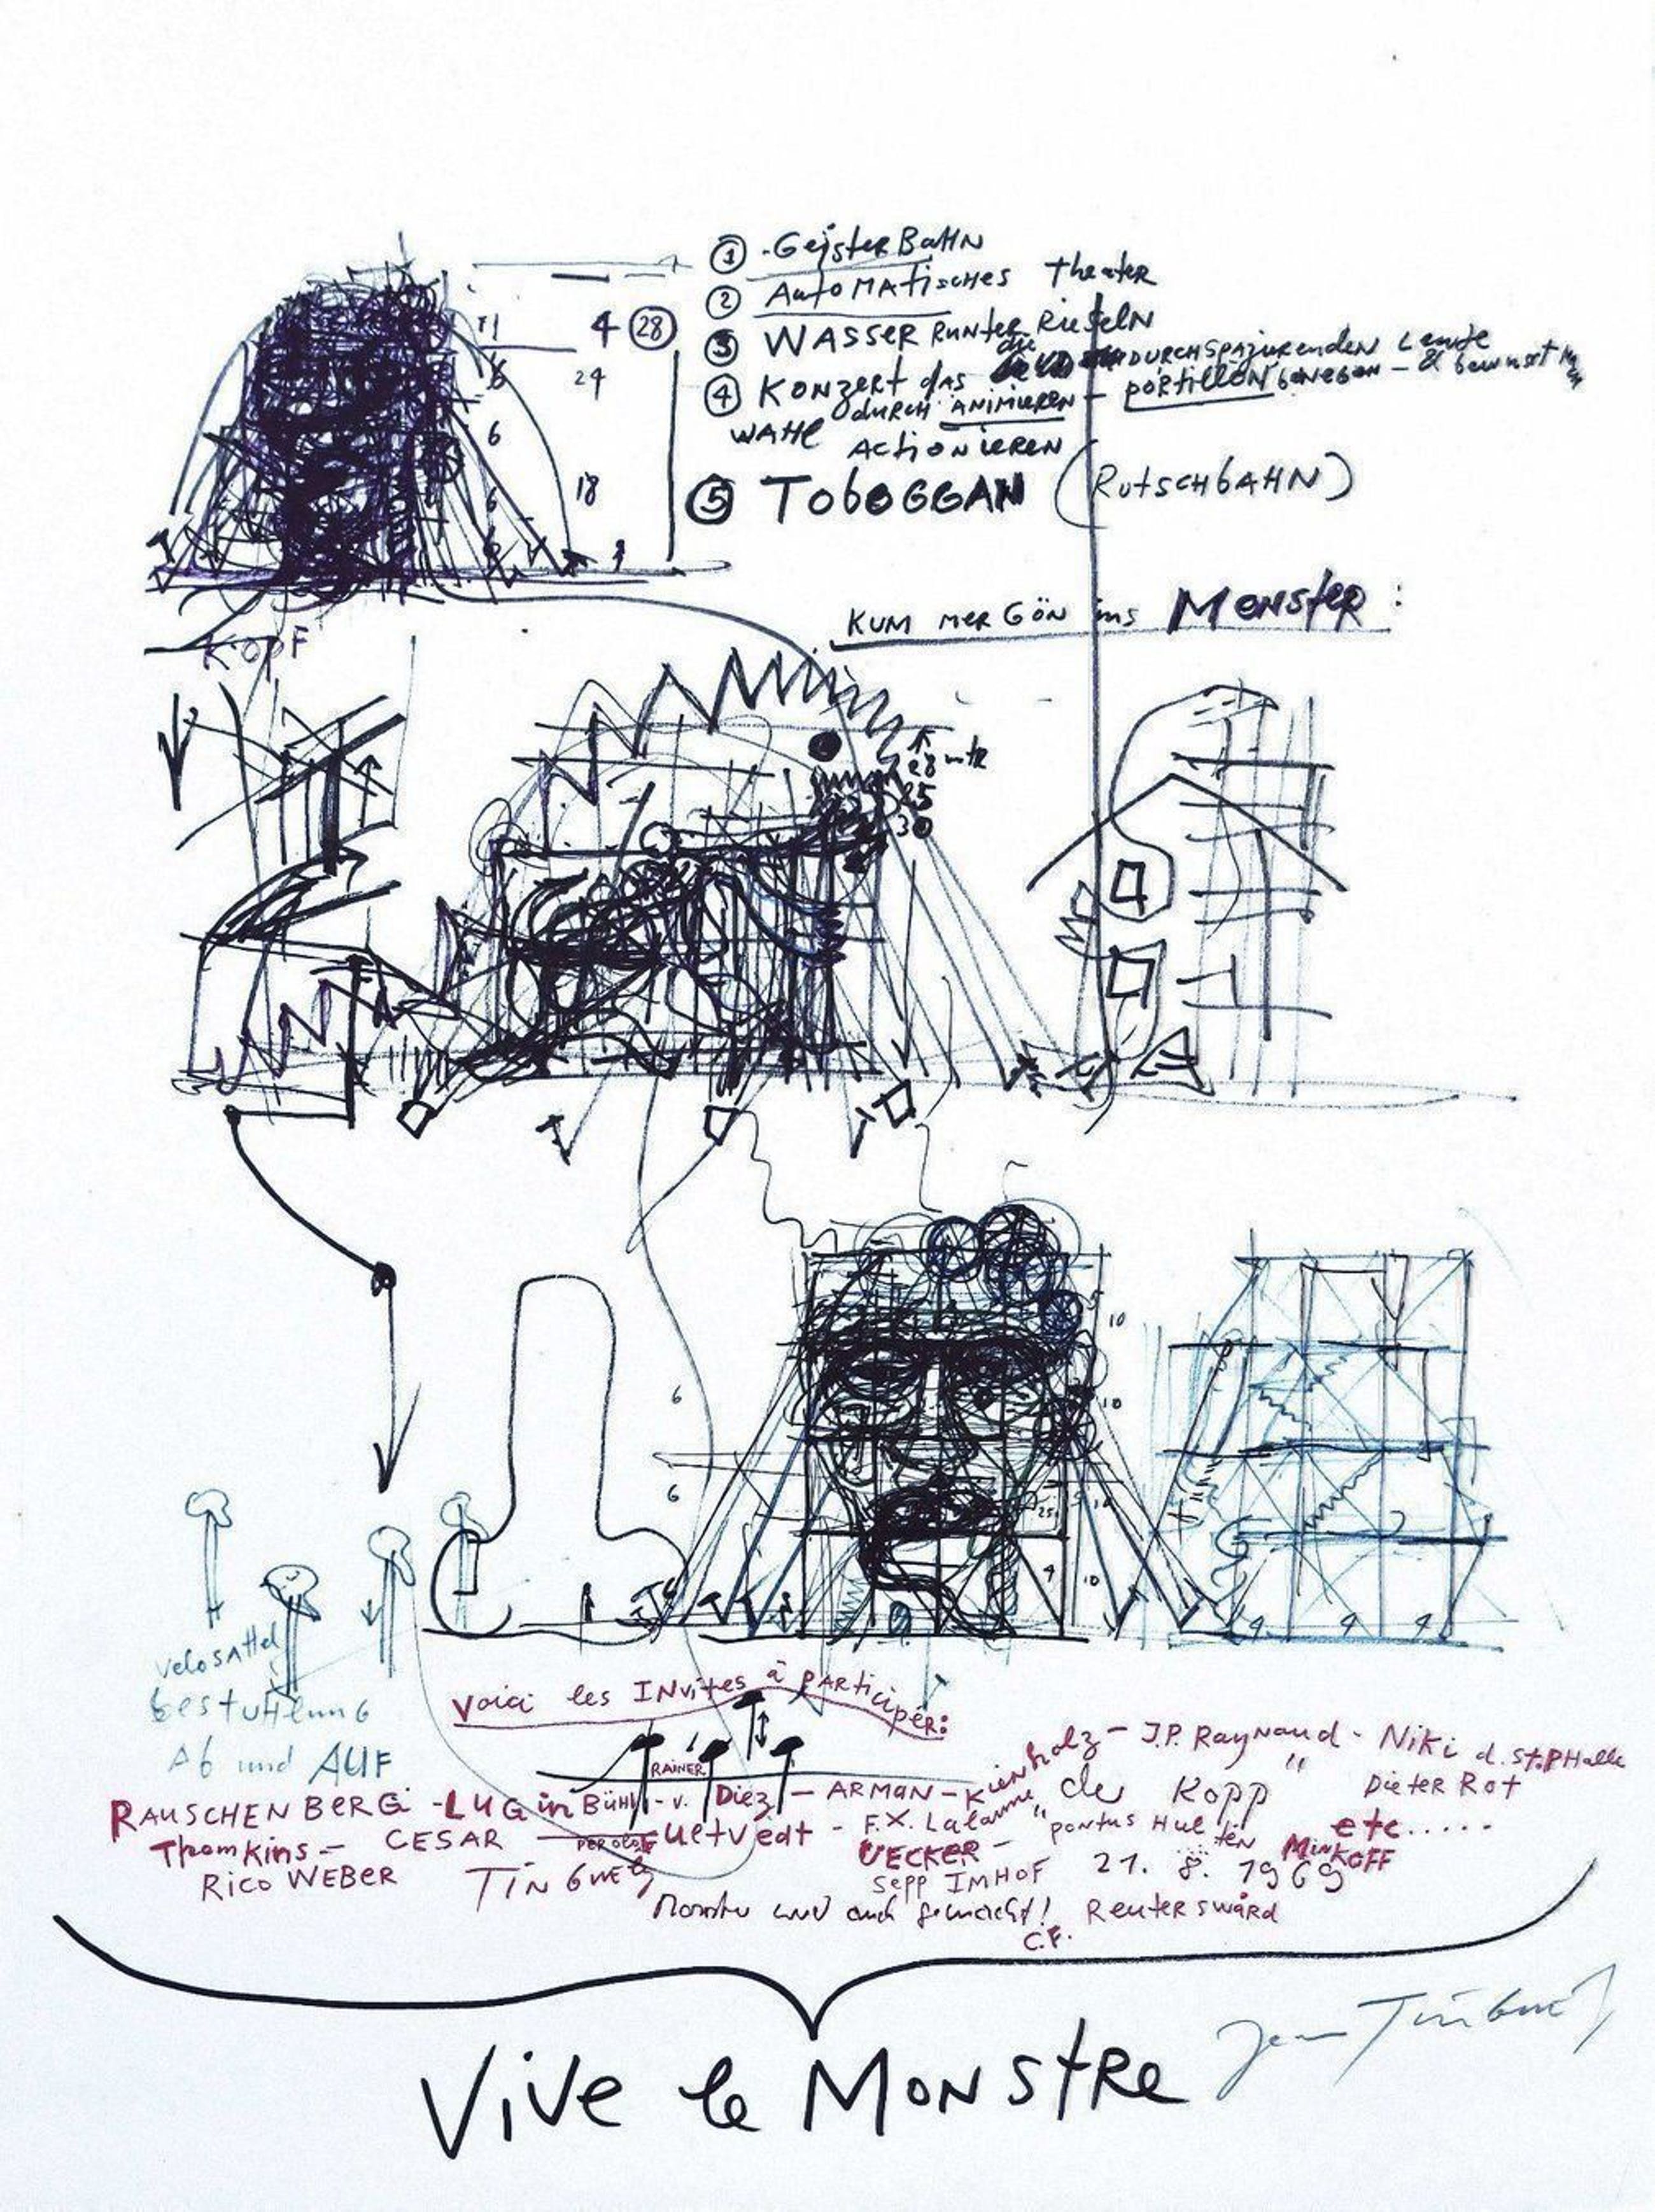 ① -GeisterBahn
② AutoMatisches Theater
③ WASSER RUNTER Rieseln
④ KONZERT das die DURCHSPAZIERENDEN Leute
durch ANIMIEREN -
WAHL ACTIONIEREN
⑤ TobOGGAN (RutschbAHN)
11 4 ㉘
6 24
6
6 18
6
KUM mer GÖN ins MONSTER:
KOPF
28 mtr
25
30
10
6 10
6
25
4 10
4 4 4
velosattel
bestuhlung
Ab und AUF
Voici les INvités à PARticiper:
RAINER
RAUSCHENBERG - LUGinBühl - v. Diez - ARMAN - Kienholz - J.P. Raynaud - Niki d. St.PHalle
Thomkins - CESAR PER OLOF Ueltvedt - F.X. Lalanne " de Kopp " Dieter Rot
UECKER - pontus Hulten Minkoff etc.....
Rico WEBER Tinguely Sepp IMHOF 21. 8. 1969
Monster wird auch gemacht! C.F. Reuterswärd
Vive le MONSTRe
Jean Tinguely